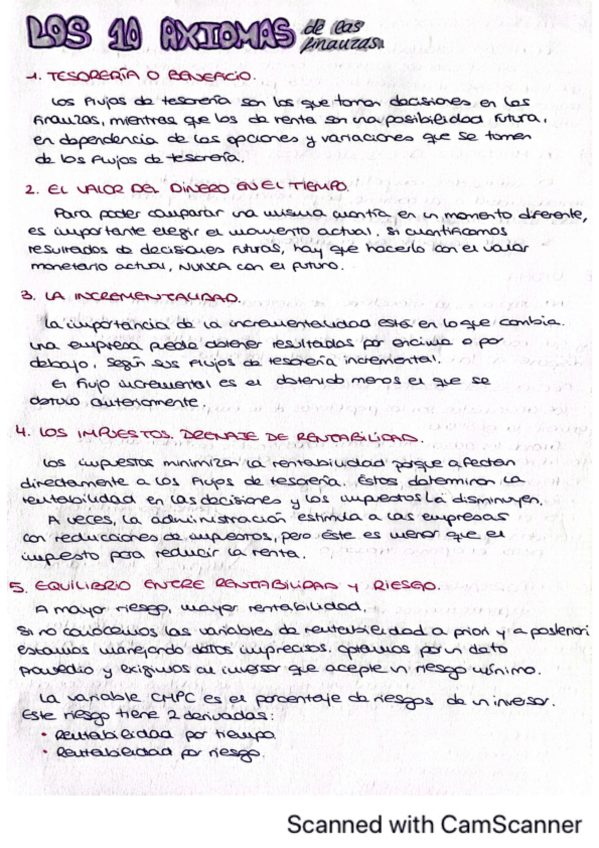 LOS 10 AXIOMAS de las finanzas.
1. TESORERÍA O BENEFICIO.
Los flujos de tesorería son los que toman decisiones en las
finanzas, mientras que los de renta son una posibilidad futura,
en dependencia de las opciones y variaciones que se tomen
de los flujos de tesorería.
2. EL VALOR DEL DINERO EN EL TIEMPO.
Para poder comparar una misma cuantía, en un momento diferente,
es importante elegir el momento actual. Si cuantificamos
resultados de decisiones futuras, hay que hacerlo con el valor
monetario actual, NUNCA con el futuro.
3. LA INCREMENTALIDAD.
La importancia de la incrementalidad está en lo que cambia.
Una empresa puede obtener resultados por encima o por
debajo, según sus flujos de tesorería incremental.
El flujo incremental es el obtenido menos el que se
obtuvo anteriormente.
4. LOS IMPUESTOS, DRENAJE DE RENTABILIDAD.
Los impuestos minimizan la rentabilidad porque afecten
directamente a los flujos de tesorería. Estos determinan la
rentabilidad en las decisiones y los impuestos la disminuyen.
A veces, la administración estimula a las empresas
con reducciones de impuestos, pero éste es menor que el
impuesto para reducir la renta.
5. EQUILIBRIO ENTRE RENTABILIDAD Y RIESGO.
A mayor riesgo, mayor rentabilidad.
Si no conocemos las variables de rentabilidad a priori y a posteriori
estamos manejando datos imprecisos. Optemos por un dato
promedio y exigimos al inversor que acepte un riesgo mínimo.
La variable CMPC es el porcentaje de riesgos de un inversor.
Este riesgo tiene 2 derivadas:
• Rentabilidad por tiempo
• Rentabilidad por riesgo.
Scanned with CamScanner